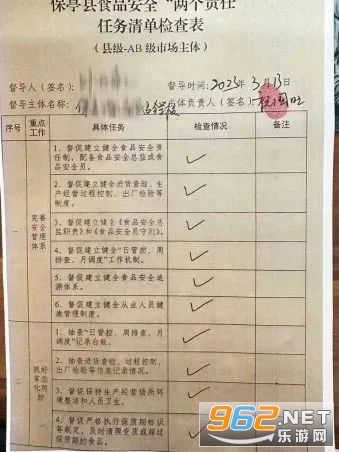 保亭县食品安全“两个责任
任务清单检查表
(县级-AB级市场主体)
督导人(签名):
督导时间:2023年3月13日
督导主体名称:
主体负责人(签名)
序号
重点
工作
具体任务
检查情况
备注
一
完善
安全
管理
体系
1. 督促建立健全食品安全责
任制,配备食品安全总监或食
品安全员。
✓
2. 督促建立健全进货查验、生
产经营过程控制、出厂检验等
制度。
✓
3. 督促建立健全《食品安全总
监职责》和《食品安全员守则》。
✓
4. 督促建立健全“日管控、周
排查、月调度”工作机制。
✓
5. 督促建立健全食品安全追
溯体系。
✓
6. 督促建立健全从业人员健
康管理制度。
✓
二
抓好
常态
化防
控
1. 抽查“日管控、周排查、月
调度”记录台账。
✓
2. 抽查进货查验、过程控制、
出厂检验等信息记录情况。
✓
3. 督促保持生产经营场所环
境整洁和人员卫生。
✓
4. 督促严格执行保质期标识
等规定,及时清理变质或超过
保质期的食品。
✓
962.NET
乐游网